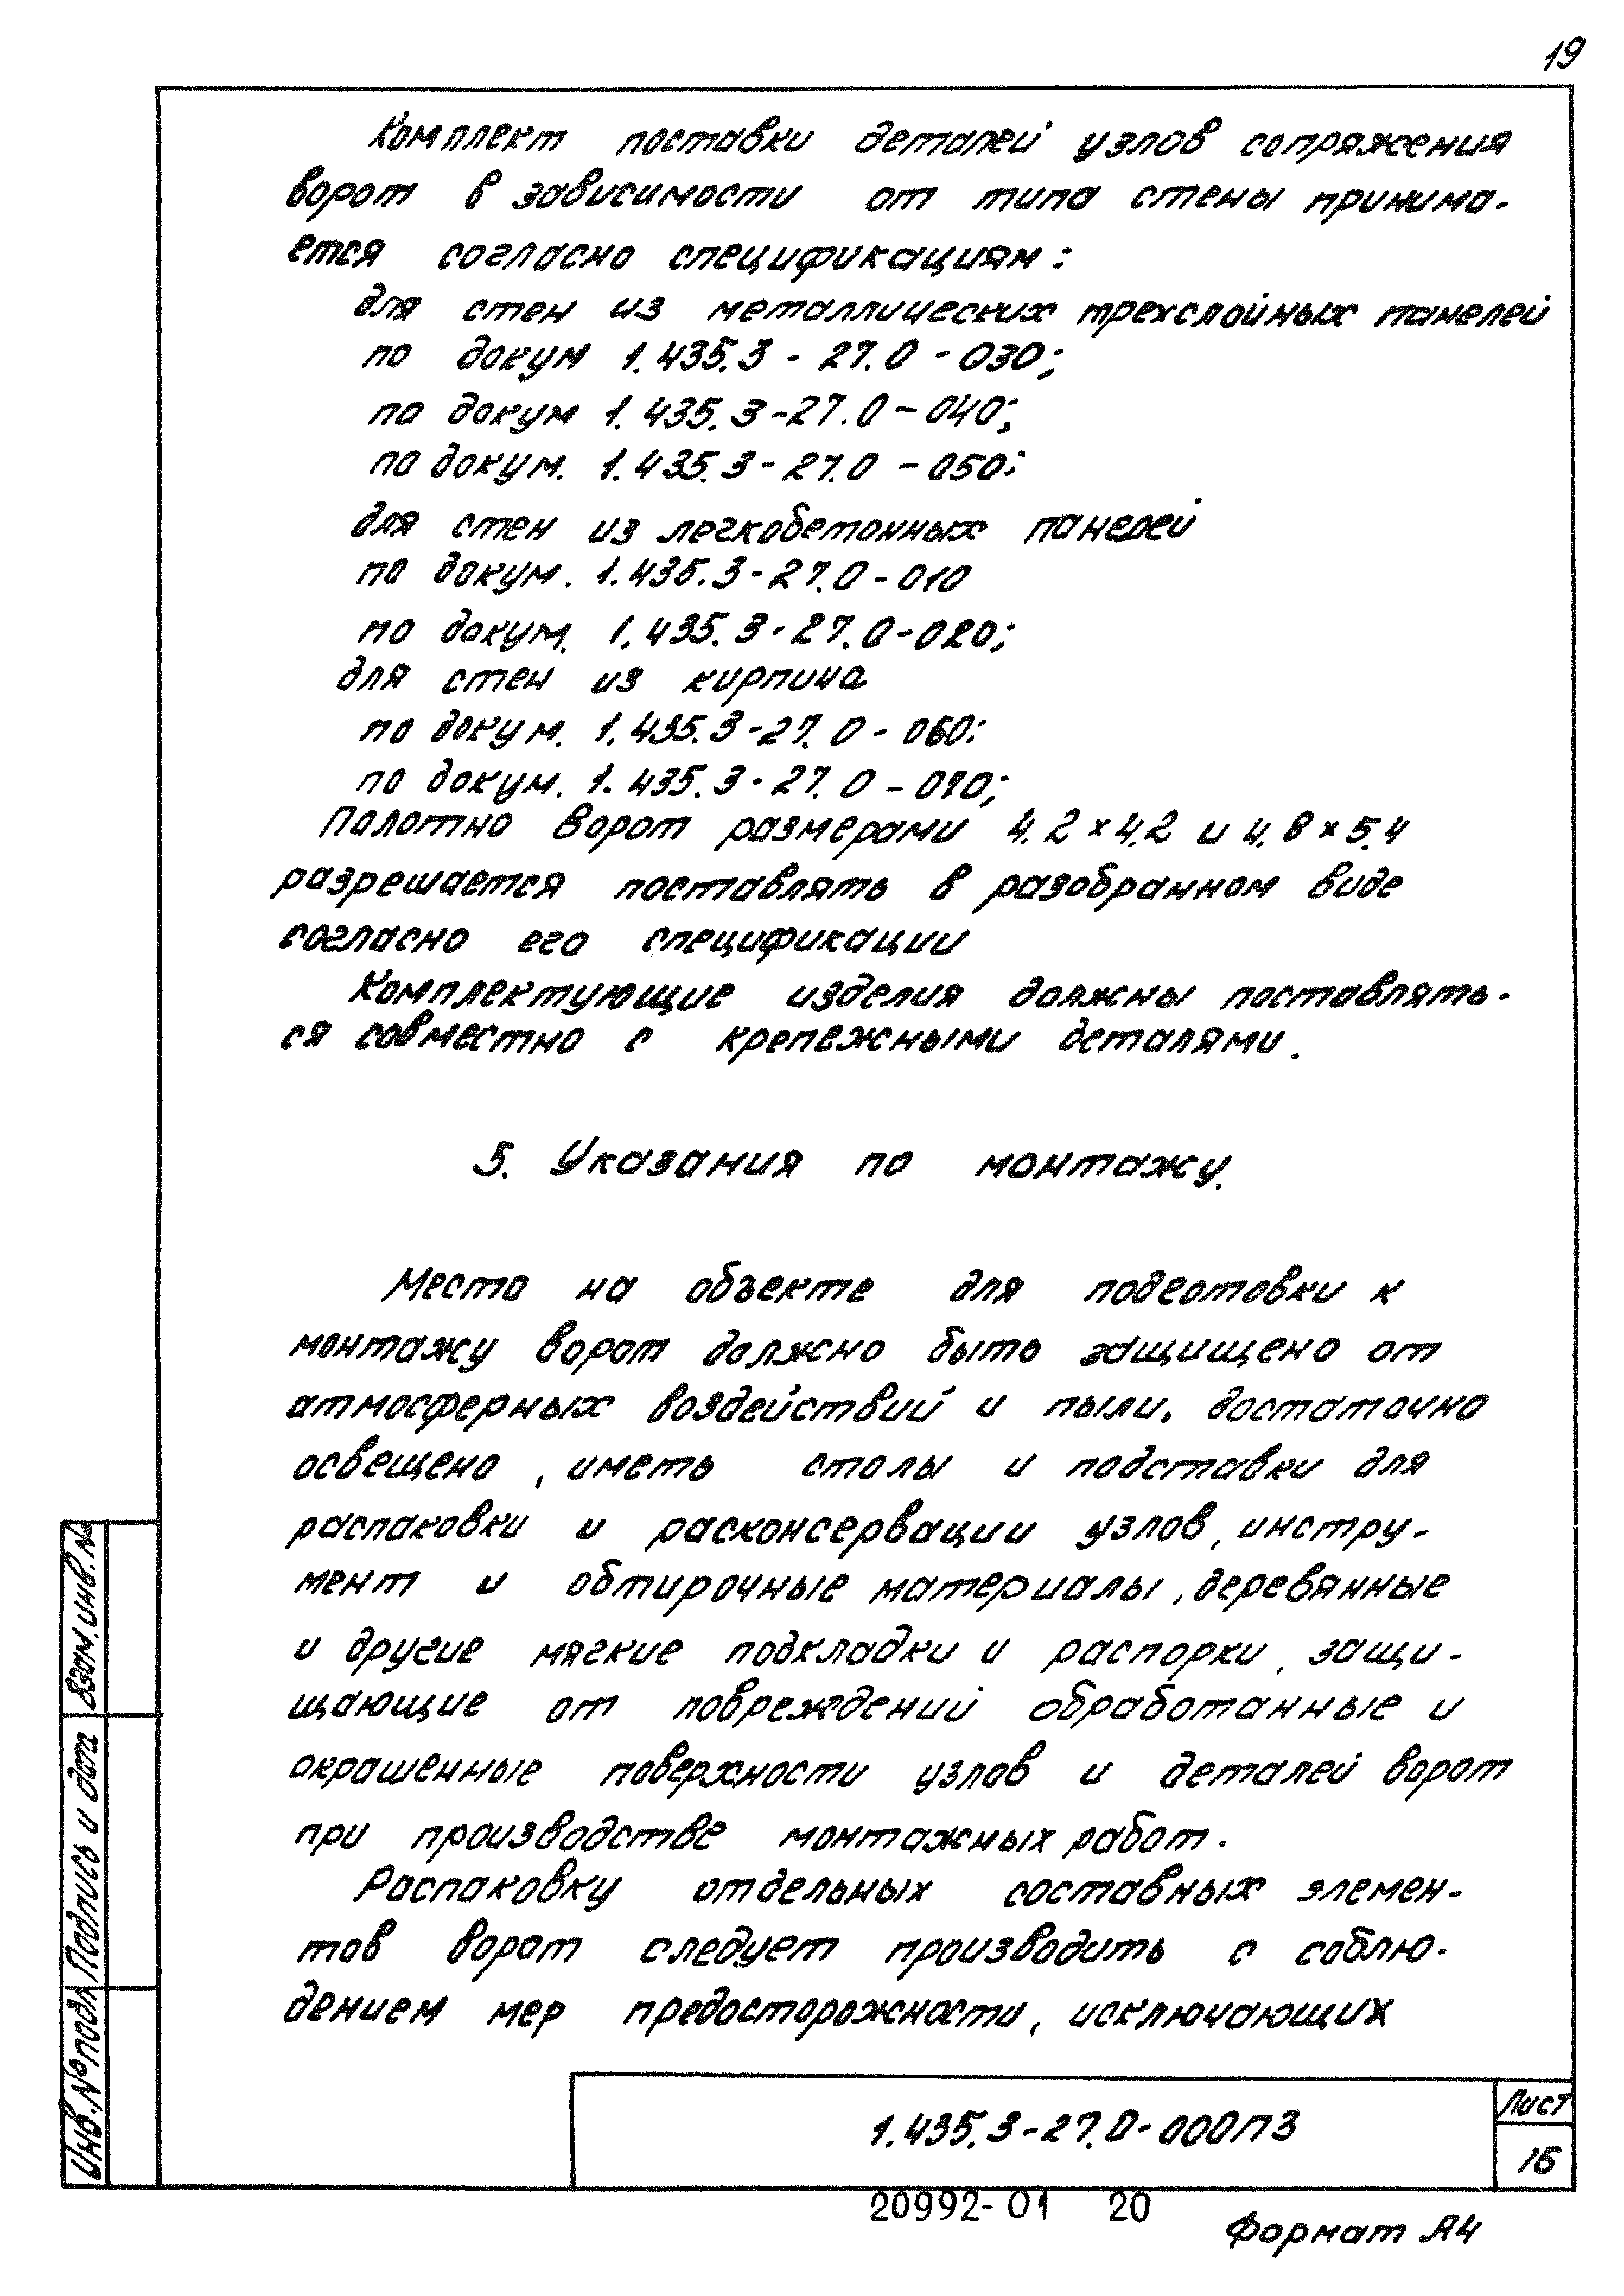 19
Комплект поставки деталей узлов сопряжения
ворот в зависимости от типа стены принима-
ется согласно спецификациям:
для стен из металлических трехслойных панелей
по докум 1.435.3-27.0-030;
по докум 1.435.3-27.0-040;
по докум. 1.435.3-27.0-050;
для стен из легкобетонных панелей
по докум. 1.435.3-27.0-010
по докум. 1.435.3-27.0-020;
для стен из кирпича
по докум. 1.435.3-27.0-060;
по докум. 1.435.3-27.0-070;
Полотно ворот размерами 4.2×4.2 и 4.8×5.4
разрешается поставлять в разобранном виде
согласно его спецификации
Комплектующие изделия должны поставлять-
ся совместно с крепежными деталями.
5. Указания по монтажу.
Место на объекте для подготовки к
монтажу ворот должно быть защищено от
атмосферных воздействий и пыли, достаточно
освещено, иметь столы и подставки для
распаковки и расконсервации узлов, инстру-
мент и обтирочные материалы, деревянные
и другие мягкие подкладки и распорки, защи-
щающие от повреждений обработанные и
окрашенные поверхности узлов и деталей ворот
при производстве монтажных работ.
Распаковку отдельных составных элемен-
тов ворот следует производить с соблю-
дением мер предосторожности, исключающих
Взам. инв. №
Подпись и дата
Инв. № подл
1.435.3-27.0-000ПЗ
Лист
16
20992-01 20
Формат А4